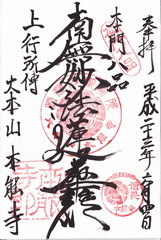 奉拝
平成二十三年六月四日
本門八品
南無妙法蓮華経
上行所傳
大本山 本能寺